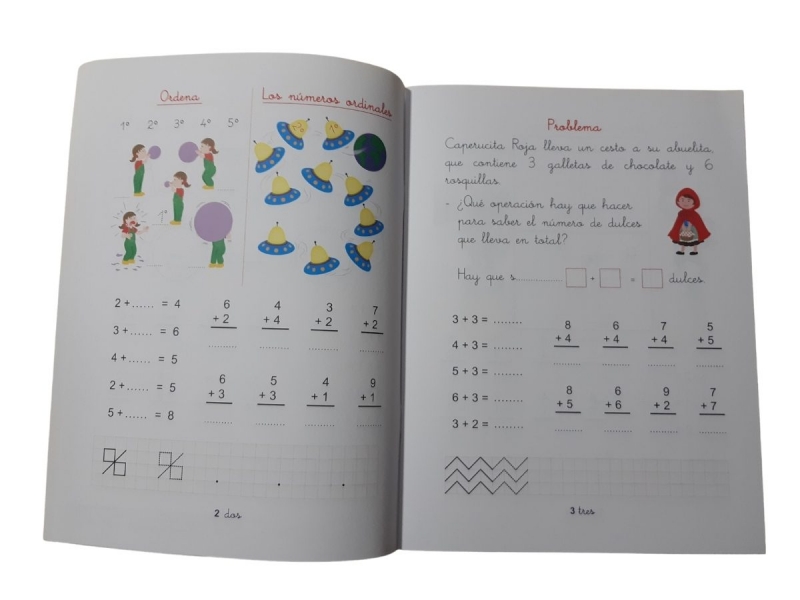 Ordena
1º 2º 3º 4º 5º
1º
Los números ordinales
1º
2 + ...... = 4
3 + ...... = 6
4 + ...... = 5
2 + ...... = 5
5 + ...... = 8
6 4 3 7
+ 2 + 4 + 2 + 2
.......... .......... .......... ..........
6 5 4 9
+ 3 + 3 + 1 + 1
.......... .......... .......... ..........
2 dos
Problema
Caperucita Roja lleva un cesto a su abuelita,
que contiene 3 galletas de chocolate y 6
rosquillas.
- ¿Qué operación hay que hacer
para saber el número de dulces
que lleva en total?
Hay que s............ + = dulces.
3 + 3 = ........
4 + 3 = ........
5 + 3 = ........
6 + 3 = ........
3 + 2 = ........
8 6 7 5
+ 4 + 4 + 4 + 5
.......... .......... .......... ..........
8 6 9 7
+ 5 + 6 + 2 + 7
.......... .......... .......... ..........
3 tres